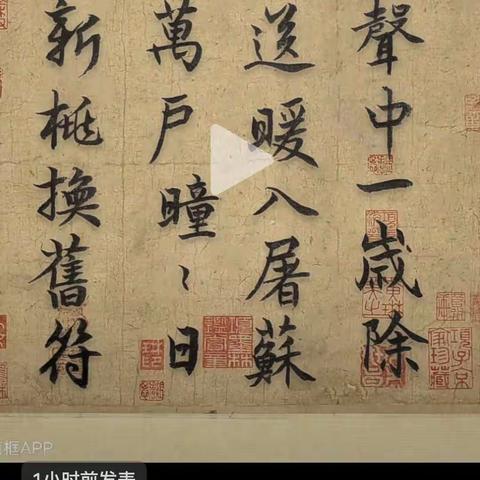 聲中一歲除
送暖入屠蘇
萬戶曈〻日
新桃換舊符
框APP
1小时前发表